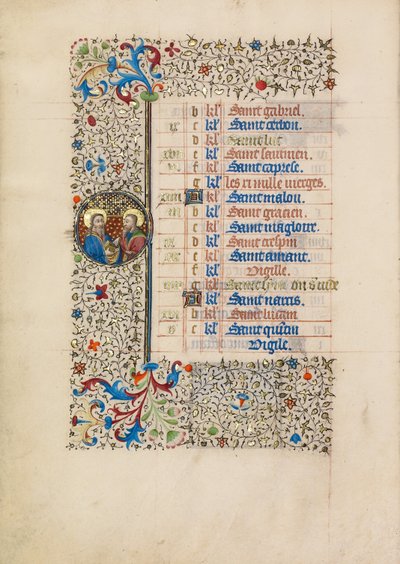 b kł Saint gabriel.
c kł Saint cerbon.
d kł Saint luc
e kł Saint sauinien.
f kł Saint caprese.
g kł les xi mille vierges.
A kł Saint malou.
b kł Saint gracien.
c kł Saint magloire.
d kł Saint crespin
e kł Saint amant.
f kł Vigille.
g kł Saint
A kł Saint narcis.
b kł Saint lucain
c kł Saint quentin
Vigile.